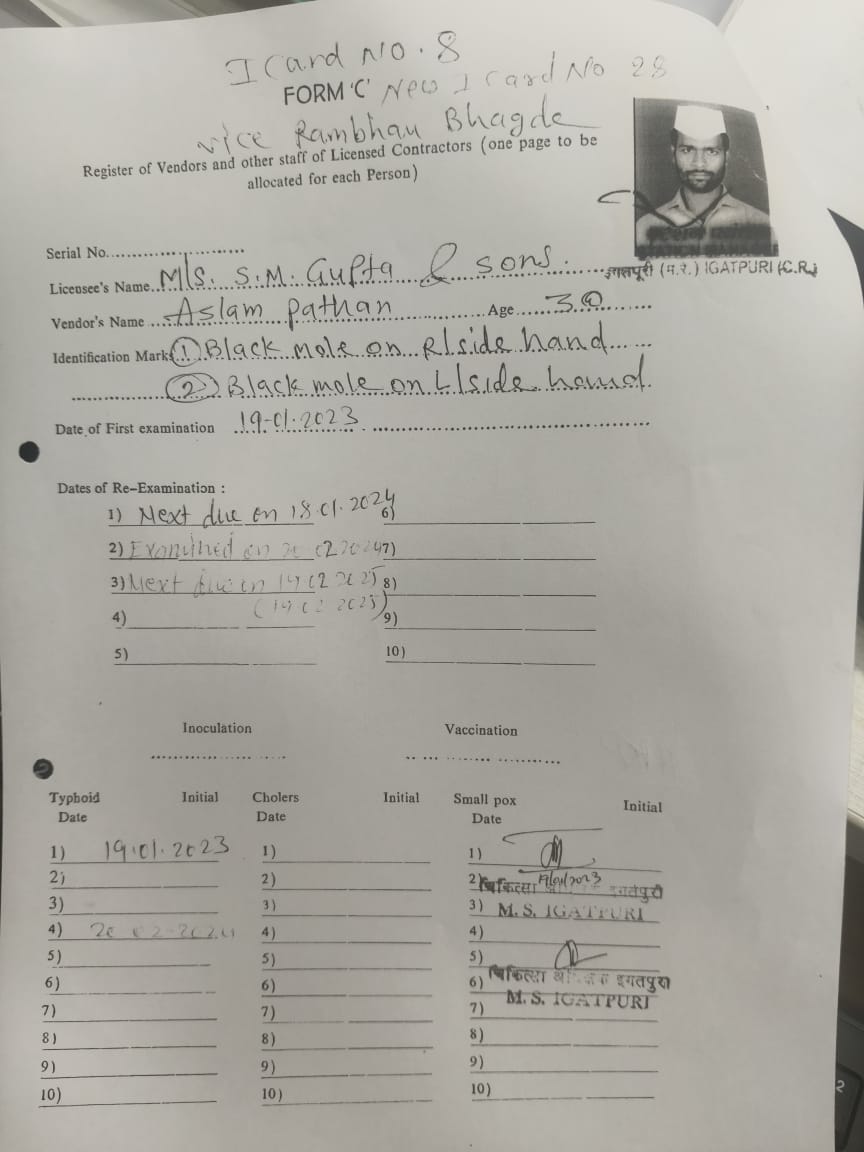 I Card No. 8
FORM 'C' New I Card No 28
vice Rambhau Bhagde
Register of Vendors and other staff of Licensed Contractors (one page to be
allocated for each Person)
Serial No.
Licensee's Name M/s. S.M. Gupta & sons.
इगतपूरी (म.रे.) IGATPURI (C.R.)
Vendor's Name Aslam pathan Age 30
Identification Marks ① Black mole on R/side hand
② Black mole on L/side hand.
Date of First examination 19-01-2023
Dates of Re-Examination :
1) Next due on 18.01.2024 6)
2) Examined on 20 02 2024 7)
3) Next due on 19 02 2025 8)
(19 02 2025)
4) 9)
5) 10)
Inoculation Vaccination
Typhoid Initial Cholers Initial Small pox Initial
Date Date Date
1) 19.01.2023 1) 1)
2) 2) 2) 19/01/2023
चिकित्सा इगतपुरी
3) 3) 3) M. S. IGATPURI
4) 20-02-2024 4) 4)
5) 5) 5)
6) 6) 6) चिकित्सा इगतपुरी
7) 7) 7) M. S. IGATPURI
8) 8) 8)
9) 9) 9)
10) 10) 10)
2